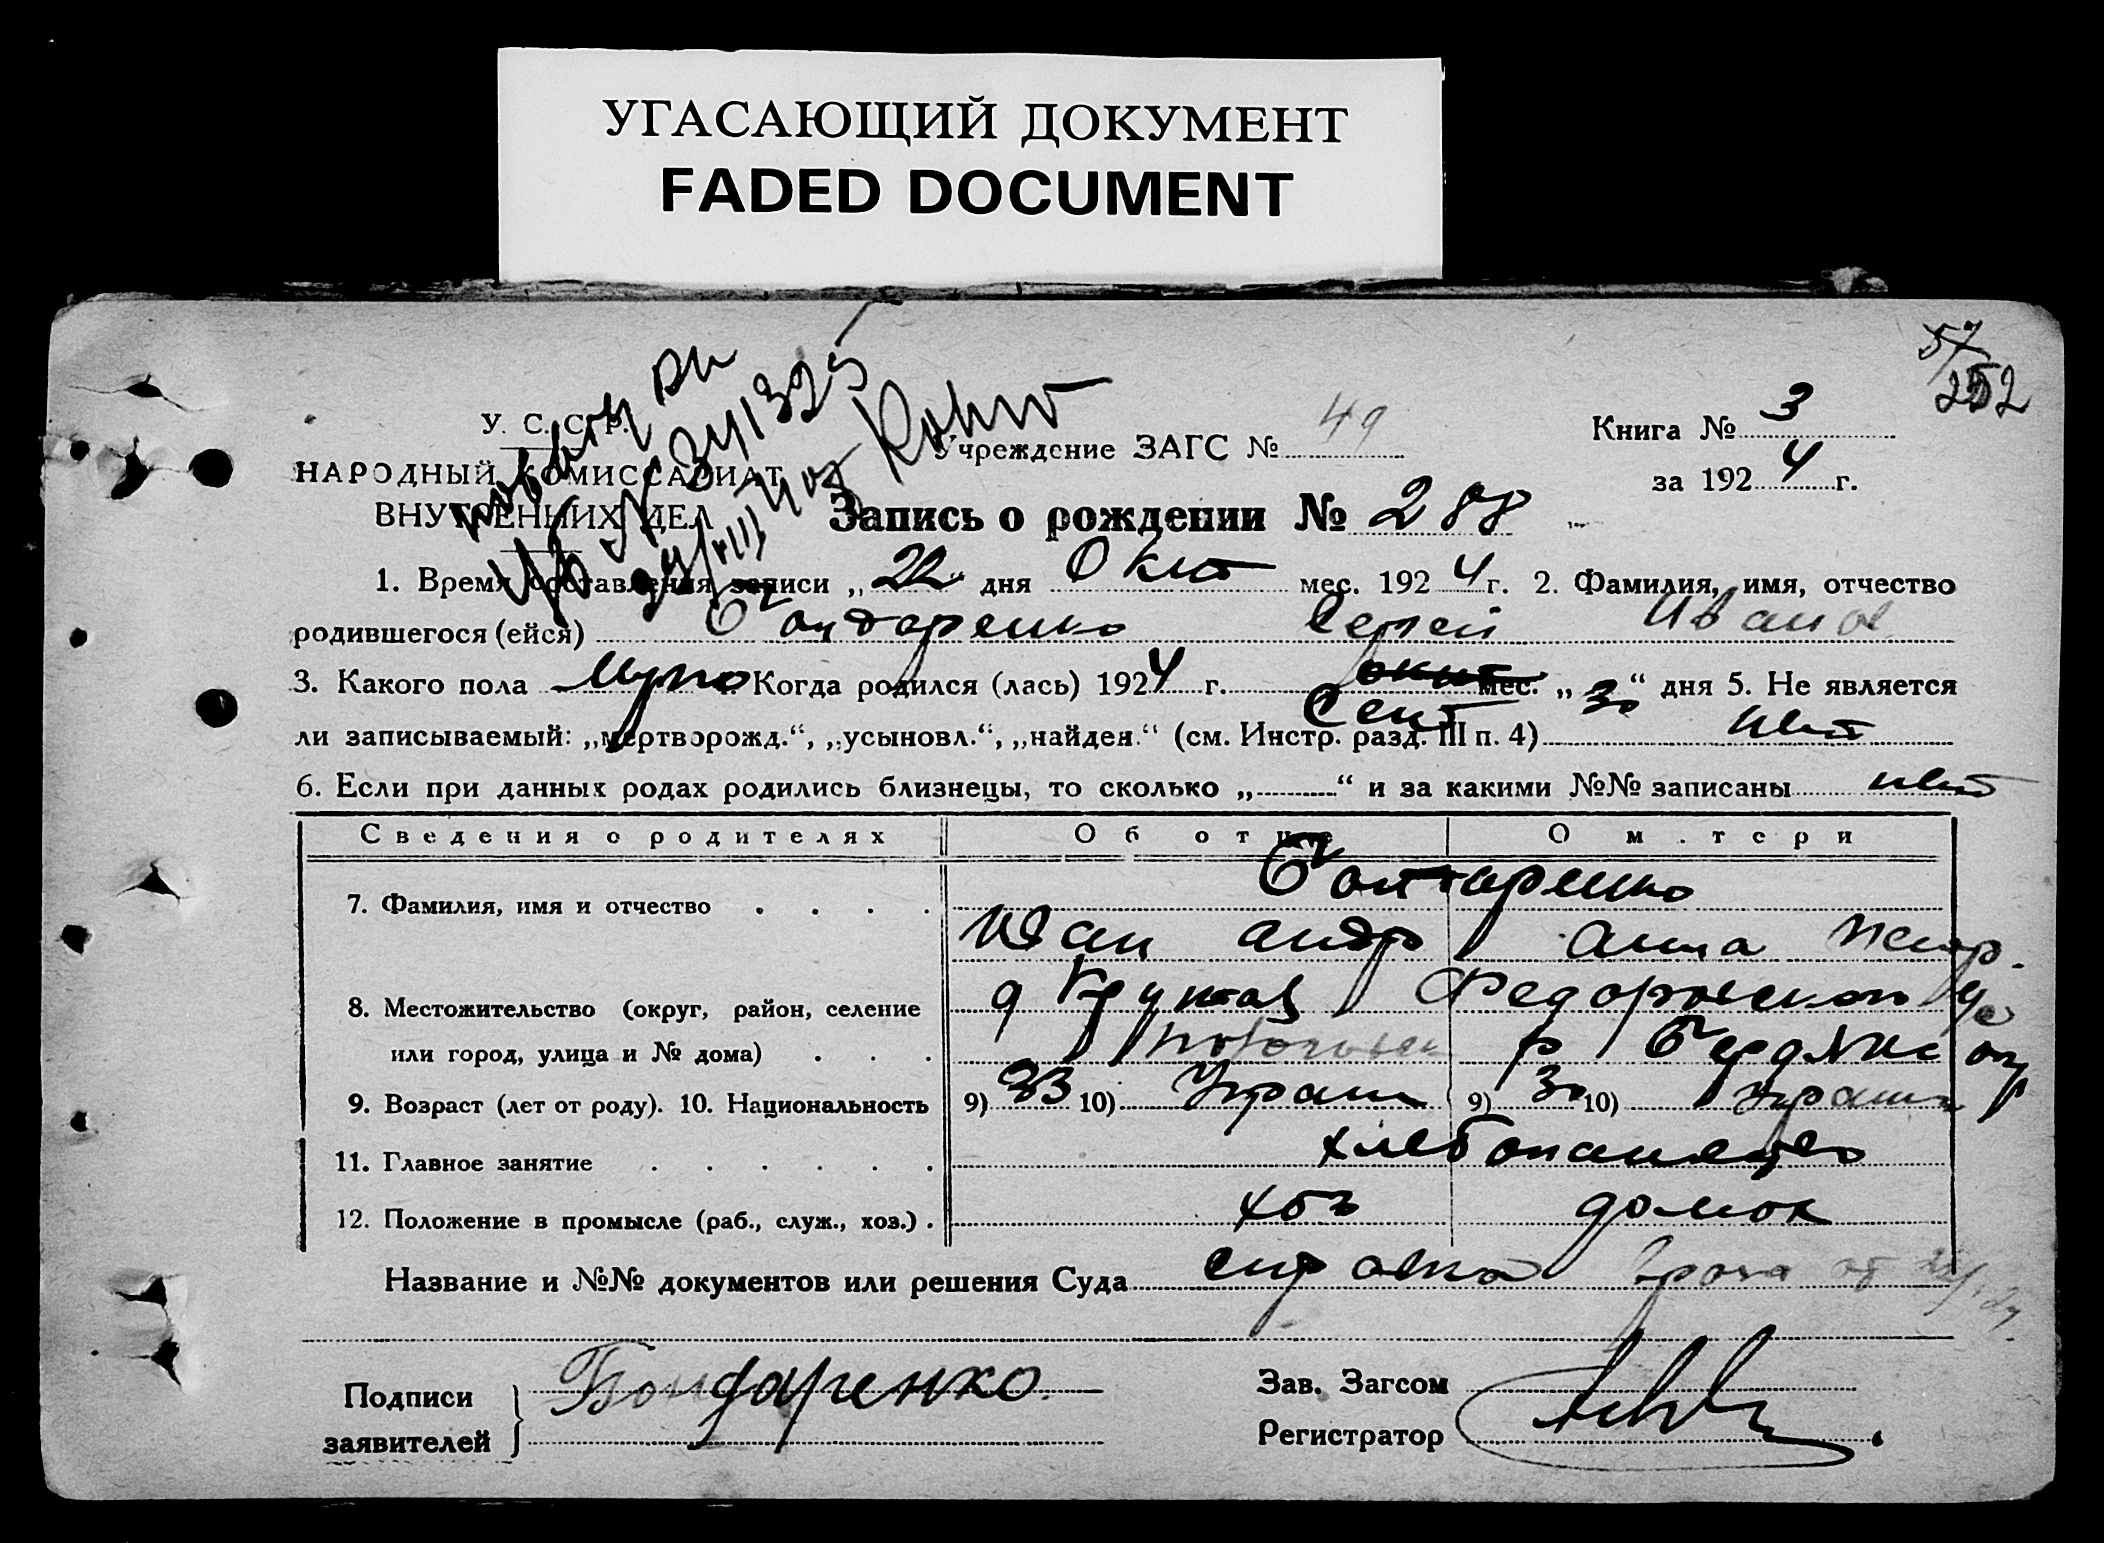 УГАСАЮЩИЙ ДОКУМЕНТ
FADED DOCUMENT
57
252
У. С. С. Р.
НАРОДНЫЙ КОМИССАРИАТ
ВНУТРЕННИХ ДЕЛ
Учреждение ЗАГС № 49
Книга № 3
за 1924 г.
Запись о рождении № 288
1. Время составления записи „22“ дня Окт мес. 1924 г. 2. Фамилия, имя, отчество
родившегося (ейся) Бондаренко Сергей Иванов
3. Какого пола Муж Когда родился (лась) 1924 г. окт мес. „30“ дня 5. Не является
Сент
ли записываемый: „мертворожд.“, „усыновл.“, „найден.“ (см. Инстр. разд. III п. 4) нет
6. Если при данных родах родились близнецы, то сколько „ “ и за какими №№ записаны нет
Сведения о родителях Об отце О матери
7. Фамилия, имя и отчество Бондаренко
Иван Андр Анна
8. Местожительство (округ, район, селение
или город, улица и № дома) р Бердянс окр
9. Возраст (лет от роду). 10. Национальность 9) 33 10) Украин 9) 30 10) Украин
11. Главное занятие хлебопашество
12. Положение в промысле (раб., служ., хоз.) хоз домох
Название и №№ документов или решения Суда справка врача от
Подписи
заявителей
Бондаренко
Зав. Загсом
Регистратор